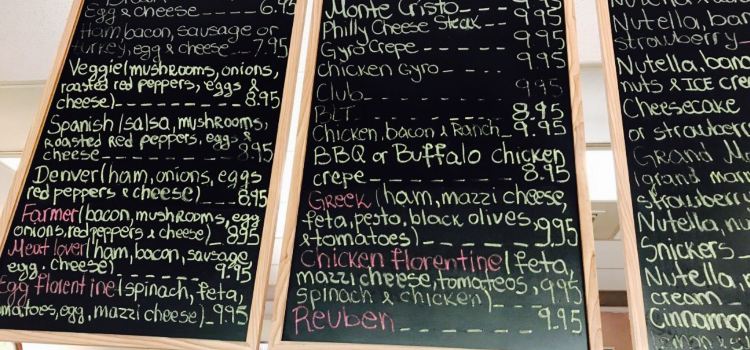 Egg & cheese _ _ _ _ 6.95
Ham, bacon, sausage or
turkey, egg & cheese _ _ _ 7.95
Veggie (mushrooms, onions,
roasted red peppers, eggs &
cheese) _ _ _ _ _ _ 8.95
Spanish (salsa, mushrooms,
Roasted Red peppers, eggs &
cheese _ _ _ _ _ _ _ 8.95
Denver (ham, onions, eggs
red peppers & cheese) _ _ _ 8.95
Farmer (bacon, mushrooms, egg
onions, red peppers & cheese) _ 8.95
Meat lover (ham, bacon, sausage
egg, cheese) _ _ _ _ _ 9.95
Egg florentine (spinach, feta,
tomatoes, egg, mazzi cheese) _ 9.95
Monte Cristo _ _ _ _ 9.95
Philly Cheese Steak _ _ 9.95
Gyro Crepe _ _ _ _ _ 9.95
Chicken Gyro _ _ _ _
Club _ _ _ _ _ _ _ 9.95
BLT _ _ _ _ _ _ _ 8.95
Chicken, bacon & Ranch _ 9.95
BBQ or Buffalo chicken
crepe _ _ _ _ _ _ _ 8.95
Greek (ham, mazzi cheese,
feta, pesto, black olives,
& tomatoes) _ _ _ _ 9.95
Chicken florentine (feta,
mazzi cheese, tomatoes,
spinach & chicken) _ 9.95
Reuben _ _ _ _ _ 9.95
Nutella, ban
strawberry
Nutella, bana
nuts & ICE crea
Cheesecake
or strawber
Grand Ma
grand mar
strawberr
Nutella, nu
Snickers _
Nutella,
cream _
Cinnamon